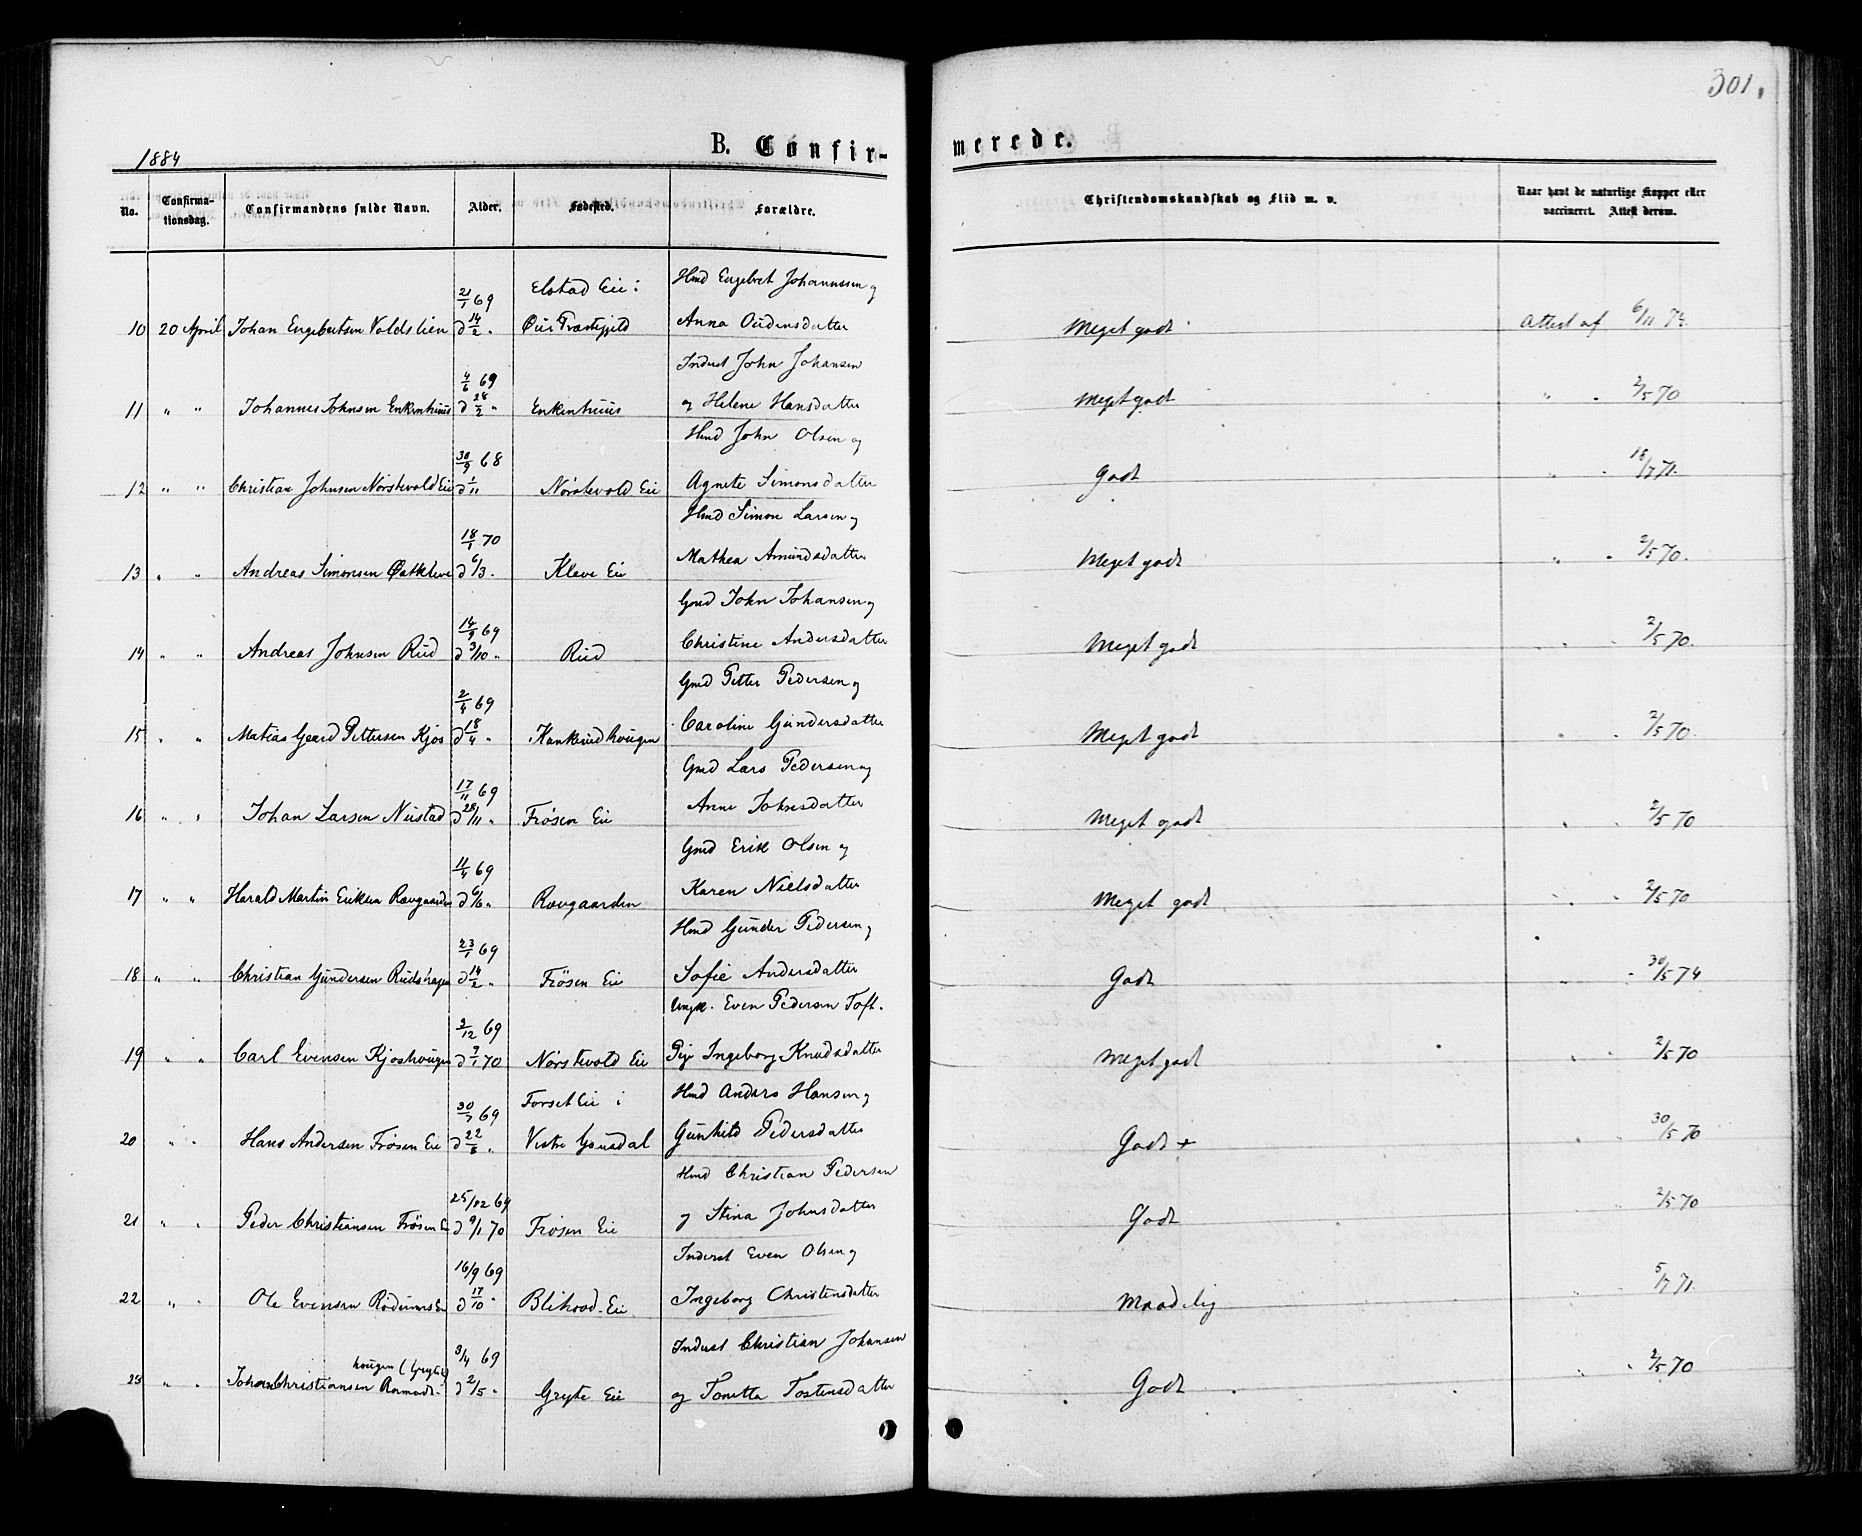 301.
1884
B. Confir-
merede.
No.
Confirma-
tionsdag.
Confirmandens fulde Navn.
Alder.
Fødested.
Forældre.
Christendomskundskab og Flid m. v.
Naar havt de naturlige Kopper eller
vaccineret. Attest derom.
Elstad Eie i Hmd Engebret Johannssen og
21/1 69
10 20 April Johan Engebretsen Voldslien d 14/2 " Øier Præstegjeld Anna Oudensdatter Meget godt Attest af 6/11
Inderst John Johansen
4/6 69
11 " " Johannes Johnsen Enkenhuus d 28/2 " Enkenhuus og Helene Hansdatter Meget godt " " 2/5 70
Hmd John Olsen og
30/9 68
12 " " Christian Johnsen Nórstevold Eie d 1/11 Nórstevold Eie Agnete Simonsdatter Godt " " 18/7 71.
Hmd Simon Larsen og
18/1 70
13 " " Andreas Simonsen Østkleve d 6/3 " Kleve Eie Mathea Amundsdatter Meget godt " " 2/5 70.
Gmd John Johansen og
14/9 69
14 " " Andreas Johnsen Rud d 3/10 " Rud Christine Andersdatter Meget godt " " 2/5 70.
Gmd Petter Pedersen og
2/4 69
15 " " Matias Pettersen Kjos d 18/4 " Kankerudhougen Caroline Gundersdatter Meget godt " " 2/5 70.
Gmd Lars Pedersen og
17/11 69
16 " " Johan Larsen Nustad d 28/11 " Frösen Eie Anne Johnsdatter Meget godt " " 2/5 70
Gmd Erik Olsen og
11/4 69
17 " " Harald Martin Eriksen Rævgaarden d 6/6 " Rævgaarden Karen Nielsdatter Meget godt " " 2/5 70
Hmd Gunder Pedersen og
23/1 69
18 " " Christian Gundersen Rudshagen d 14/2 " Frösen Eie Sofie Andersdatter Godt " " 30/5 74
Ungk. Even Pedersen Toft.
3/12 69
19 " " Carl Evensen Kjoshougen d 9/1 70 Nórstevold Eie Pige Ingeborg Knudsdatter Meget godt " " 2/5 70
Forset Eie i Hmd Anders Hansen og
30/7 69
20 " " Hans Andersen Frösen Eie d 22/8 " Vestre Gausdal Gunhild Pedersdatter Godt + 30/5 70
Hmd Christian Pedersen
25/12 69
21 " " Peder Christiansen Frösen Eie d 9/1 70 Frösen Eie og Stina Johnsdatter Godt 2/5 70
Inderst Even Olsen og
16/9 69
22 " " Ole Evensen d 17/10 " Eie Ingeborg Christensdatter Maadelig " " 5/7 71.
Inderst Christian Johansen
3/4 69
hougen (Gryte)
23 " " Johan Christiansen d 2/5 " Gryte Eie og Tonetta Tostensdatter Godt " " 2/5 70